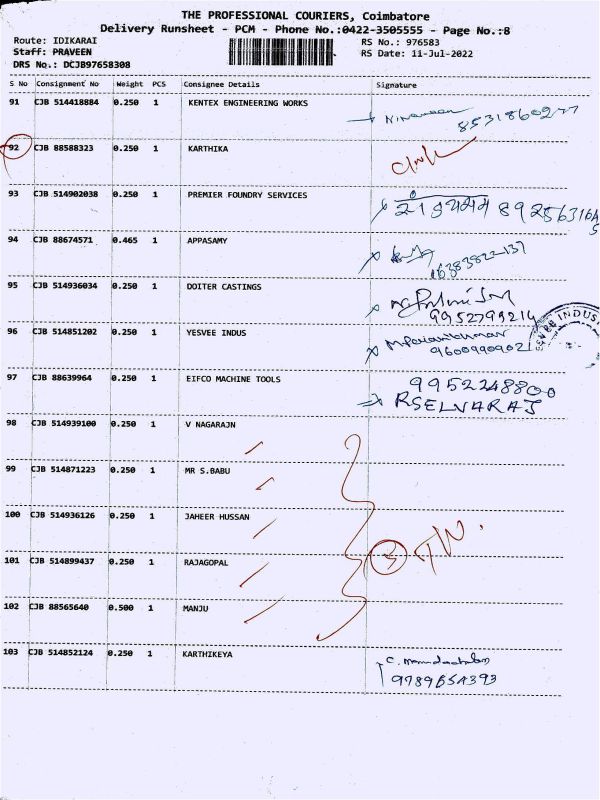 THE PROFESSIONAL COURIERS, Coimbatore
Delivery Runsheet - PCM - Phone No.:0422-3505555 - Page No.:8
Route: IDIKARAI
RS No.: 976583
Staff: PRAVEEN
RS Date: 11-Jul-2022
DRS No.: DCJB97658308
S No Consignment No Weight PCS Consignee Details Signature
91 CJB 514418884 0.250 1 KENTEX ENGINEERING WORKS
8531860277
92 CJB 88588323 0.250 1 KARTHIKA
93 CJB 514902038 0.250 1 PREMIER FOUNDRY SERVICES
94 CJB 88674571 0.465 1 APPASAMY
95 CJB 514936034 0.250 1 DOITER CASTINGS
9952799214
96 CJB 514851202 0.250 1 YESVEE INDUS
9600990902
INDUS
97 CJB 88639964 0.250 1 EIFCO MACHINE TOOLS
9952248800
RSELVARAJ
98 CJB 514939100 0.250 1 V NAGARAJN
99 CJB 514871223 0.250 1 MR S.BABU
100 CJB 514936126 0.250 1 JAHEER HUSSAN
101 CJB 514899437 0.250 1 RAJAGOPAL
102 CJB 88565640 0.500 1 MANJU
103 CJB 514852124 0.250 1 KARTHIKEYA